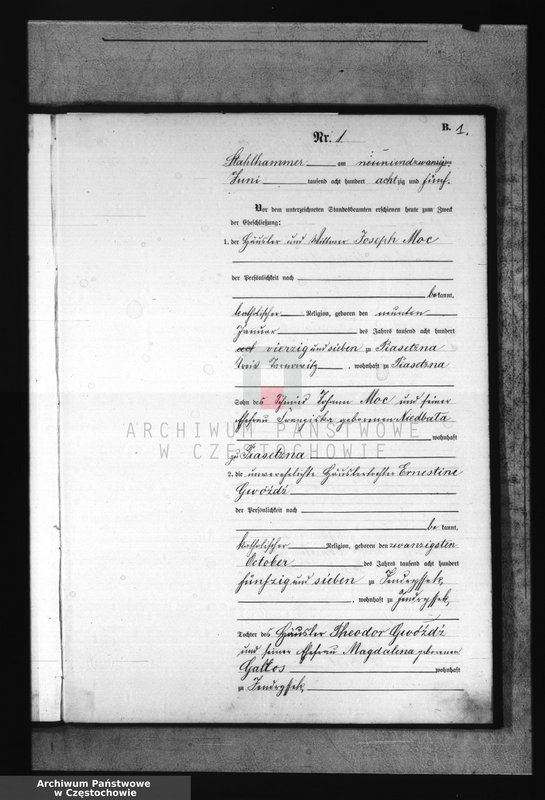 B. 1.
Nr. 1
Stahlhammer am neunundzwanzig
Juni tausend acht hundert achtzig und fünf.
Vor dem unterzeichneten Standesbeamten erschienen heute zum Zweck
der Eheschließung:
1. der Häusler und Wittwer Joseph Moc
der Persönlichkeit nach
be kannt,
katholischer Religion, geboren den neunten
Januar des Jahres tausend acht hundert
vierzig und sieben zu Piasetzna
Kreis , wohnhaft zu Piasetzna
Sohn des Schmied Johann Moc und seiner
Ehefrau Franziska geborenen Niedbala
wohnhaft
zu Piasetzna
2. die unverehelichte Häuslertochter Ernestine
Gwóźdź
der Persönlichkeit nach
be kannt,
katholischer Religion, geboren den zwanzigsten
October des Jahres tausend acht hundert
fünfzig und sieben zu Jendryssek,
, wohnhaft zu Jendryssek,
Tochter des Häusler Theodor Gwóźdź
und seiner Ehefrau Magdalena geborenen
wohnhaft
zu Jendryssek,
ARCHIWUM PAŃSTWOWE
W CZĘSTOCHOWIE
Archiwum Państwowe
w Częstochowie